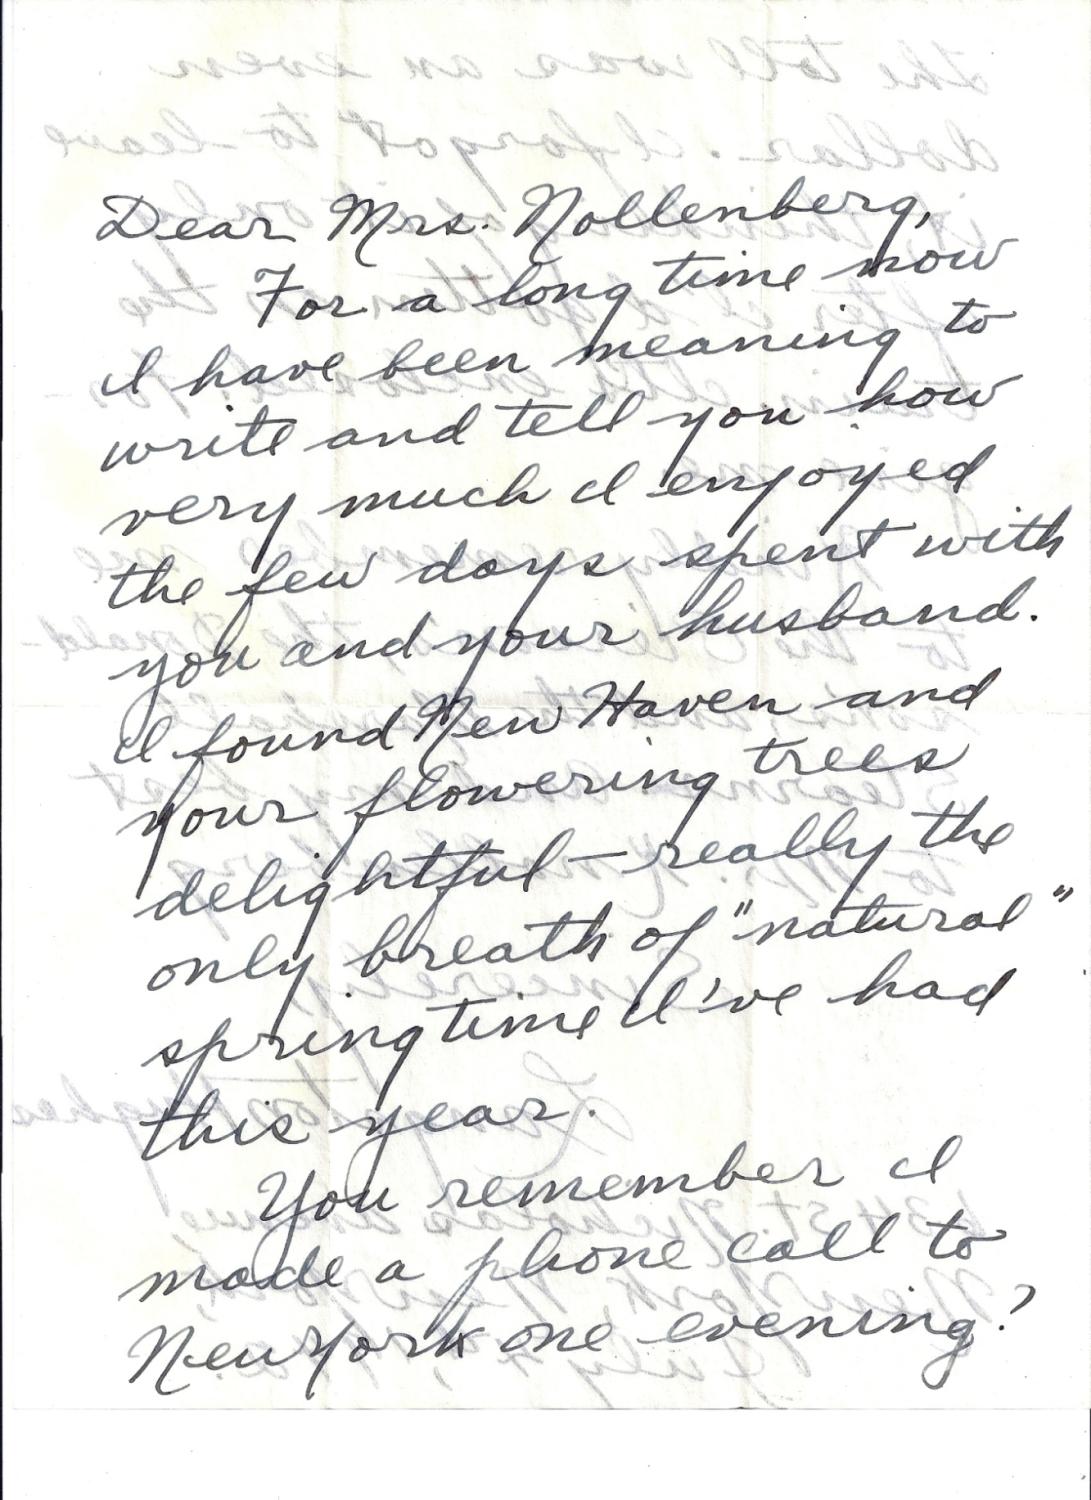 Dear Mrs. Nollenberg,
For a long time now
I have been meaning to
write and tell you how
very much I enjoyed
the few days spent with
you and your husband.
I found New Haven and
your flowering trees
delightful — really the
only breath of "natural"
springtime I've had
this year.
You remember I
made a phone call to
New York one evening?